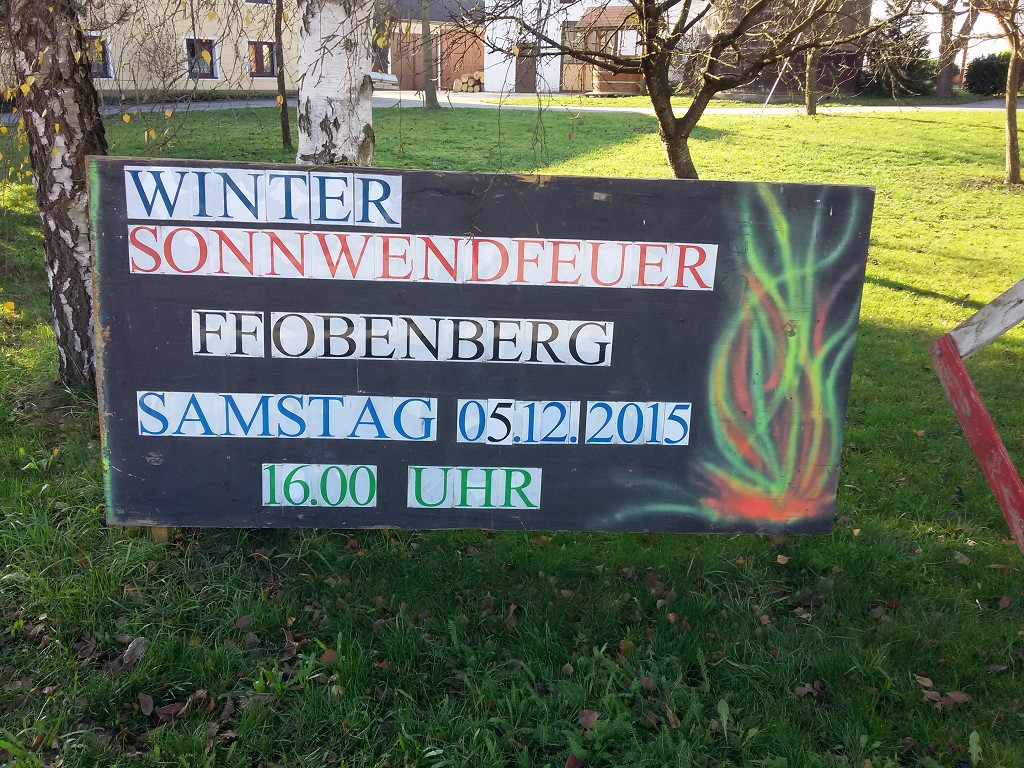 WINTER
SONNWENDFEUER
FF OBENBERG
SAMSTAG 05.12. 2015
16.00 UHR